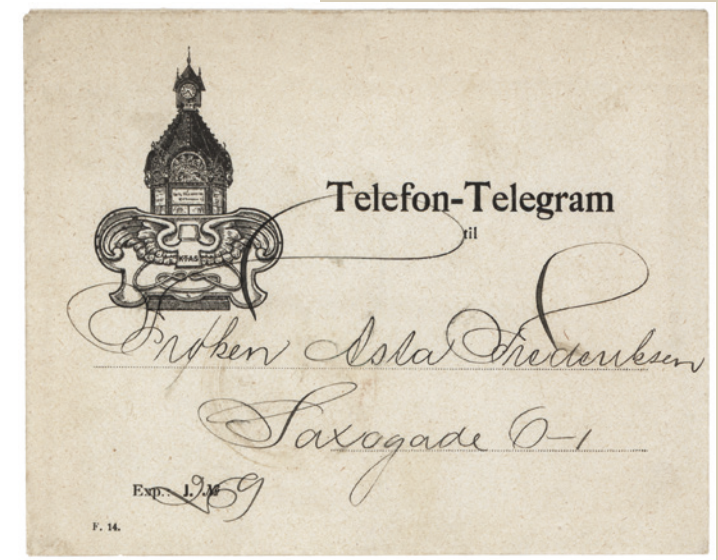 KTAS
Telefon-Telegram
til
Frøken Asta Frederiksen
Saxogade 6-1
Exp.: J. № 269
F. 14.